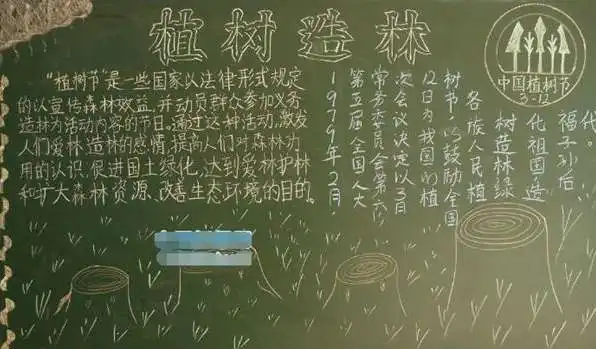 植树造林
"植树节"是一些国家以法律形式规定
的以宣传森林效益,并动员群众参加义务
造林为活动内容的节日。通过这种活动,激发
人们爱林、造林的感情,提高人们对森林功
用的认识,促进国土绿化,达到爱林护林
和扩大森林资源、改善生态环境的目的。
1979年2月,
第五届全国人大
常务委员会第六
次会议决定以3月
12日为我国的植
树节,以鼓励全国
各族人民植
树造林绿
化祖国造
福子孙后
代。
中国植树节
3-12